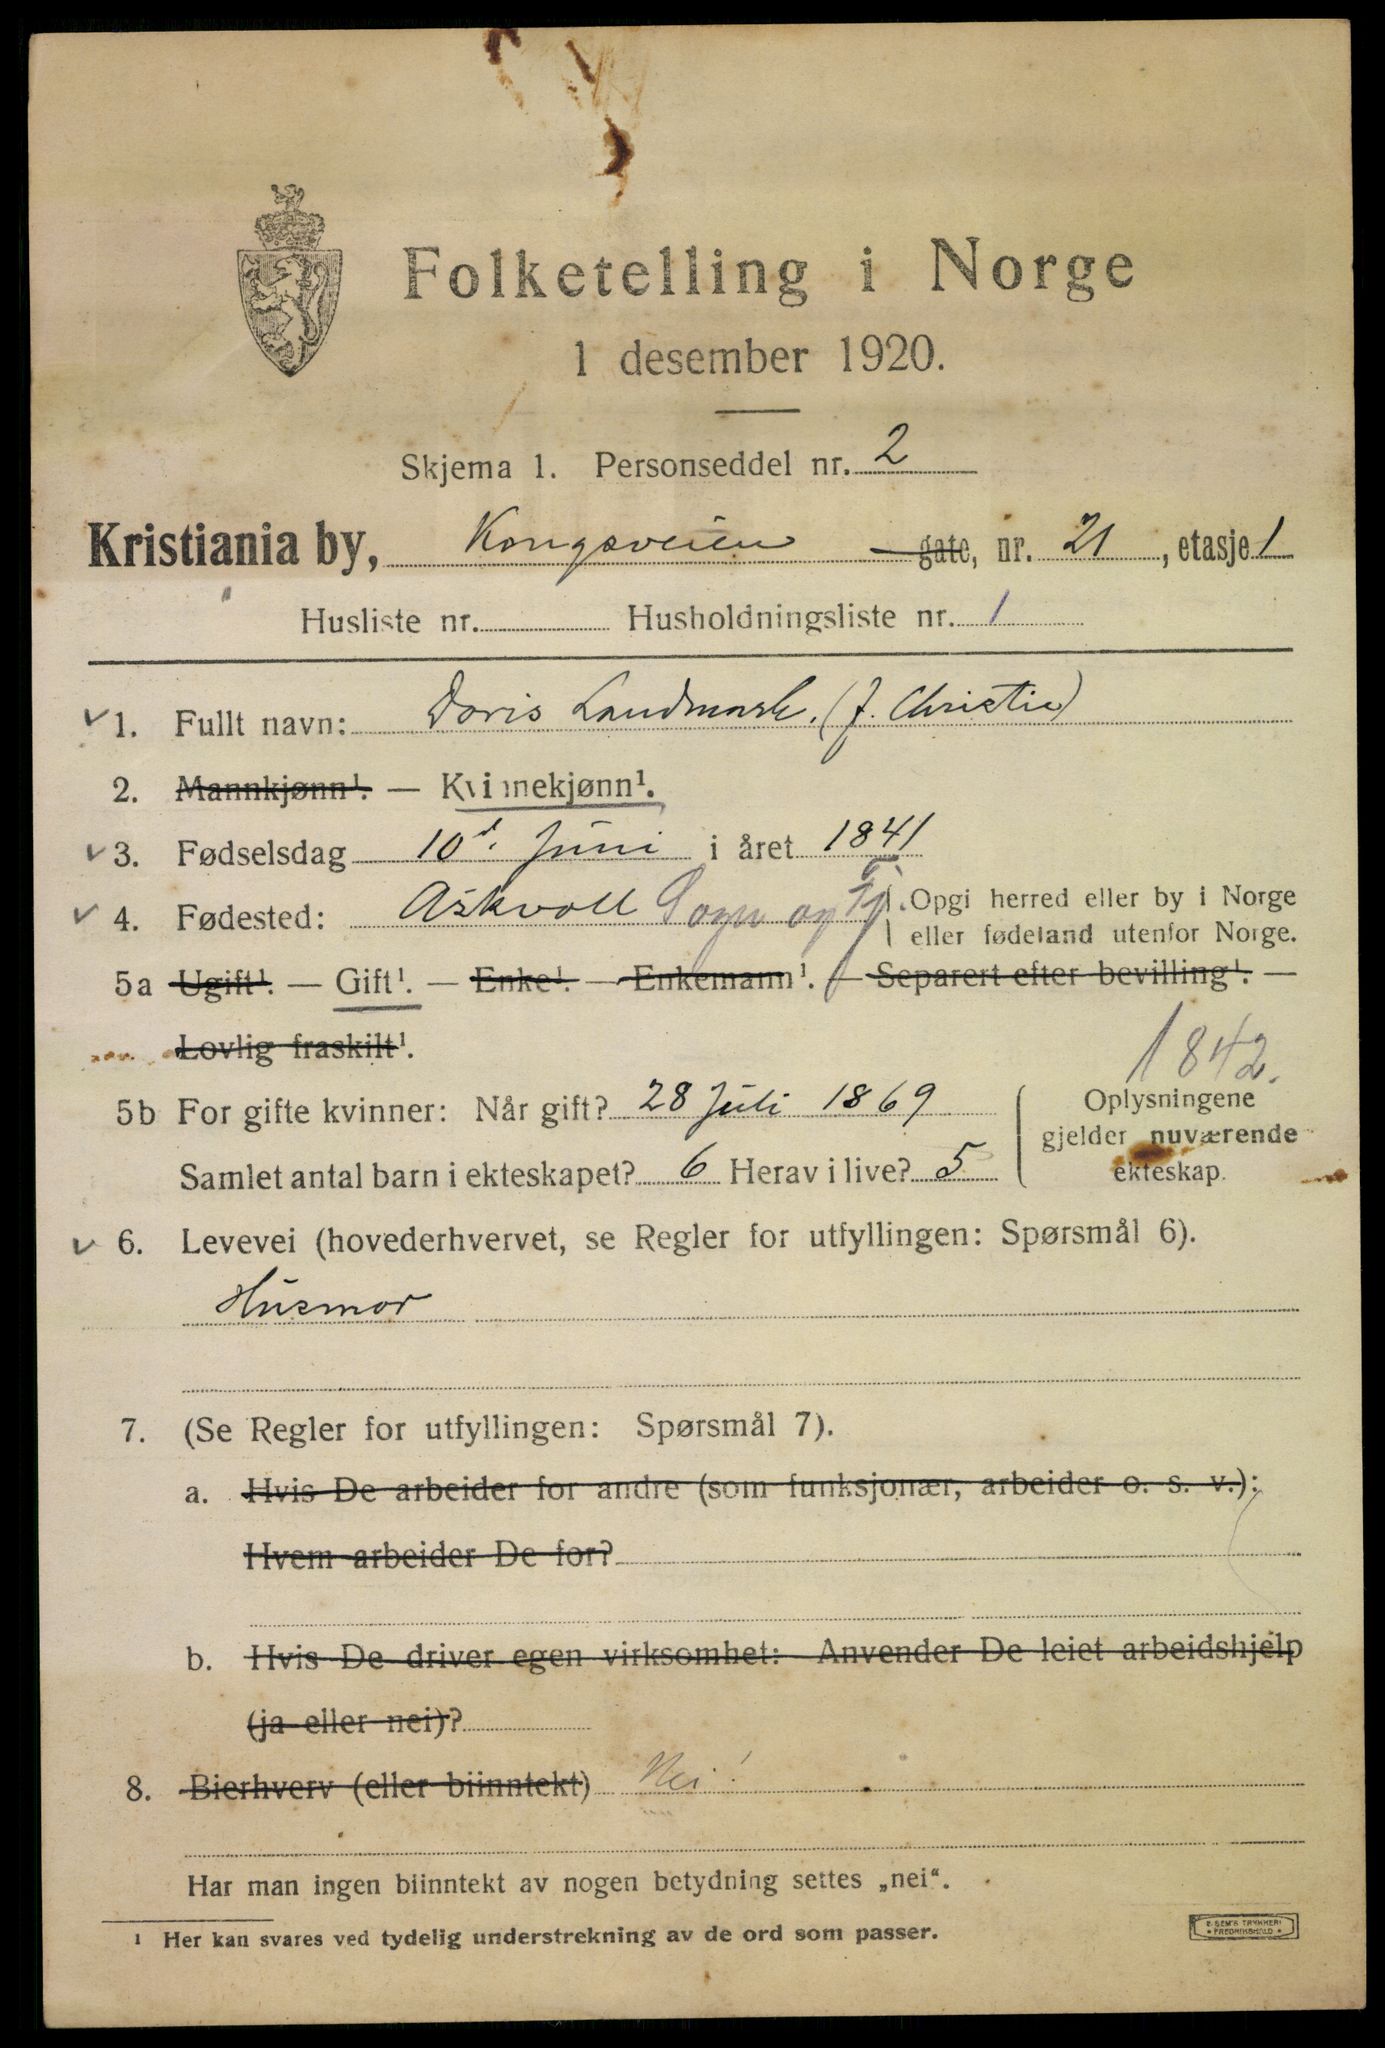 Folketelling i Norge
1 desember 1920.
Skjema 1. Personseddel nr. 2
Kristiania by, Kongsveien gate, nr. 21, etasje 1
Husliste nr. Husholdningsliste nr. 1
✓ 1. Fullt navn: Doris Landmark. (f. Christie)
2. Mannkjønn¹. — Kvinnekjønn¹.
✓ 3. Fødselsdag 10d. Juni i året 1841
✓ 4. Fødested: Askvoll Sogn og Fj. Opgi herred eller by i Norge
eller fødeland utenfor Norge.
5a Ugift¹. — Gift¹. — Enke¹. — Enkemann¹. — Separert efter bevilling¹. —
Lovlig fraskilt¹.
1842.
5b For gifte kvinner: Når gift? 28 Juli 1869
Samlet antal barn i ekteskapet? 6 Herav i live? 5
Oplysningene
gjelder nuværende
ekteskap.
✓ 6. Levevei (hovederhvervet, se Regler for utfyllingen: Spørsmål 6).
Husmor
7. (Se Regler for utfyllingen: Spørsmål 7).
a. Hvis De arbeider for andre (som funksjonær, arbeider o. s. v.):
Hvem arbeider De for?
b. Hvis De driver egen virksomhet: Anvender De leiet arbeidshjelp
(ja eller nei)?
8. Bierhverv (eller biinntekt) Nei!
Har man ingen biinntekt av nogen betydning settes „nei“.
¹ Her kan svares ved tydelig understrekning av de ord som passer.
E. SEM'S TRYKKERI
FREDRIKSHALD